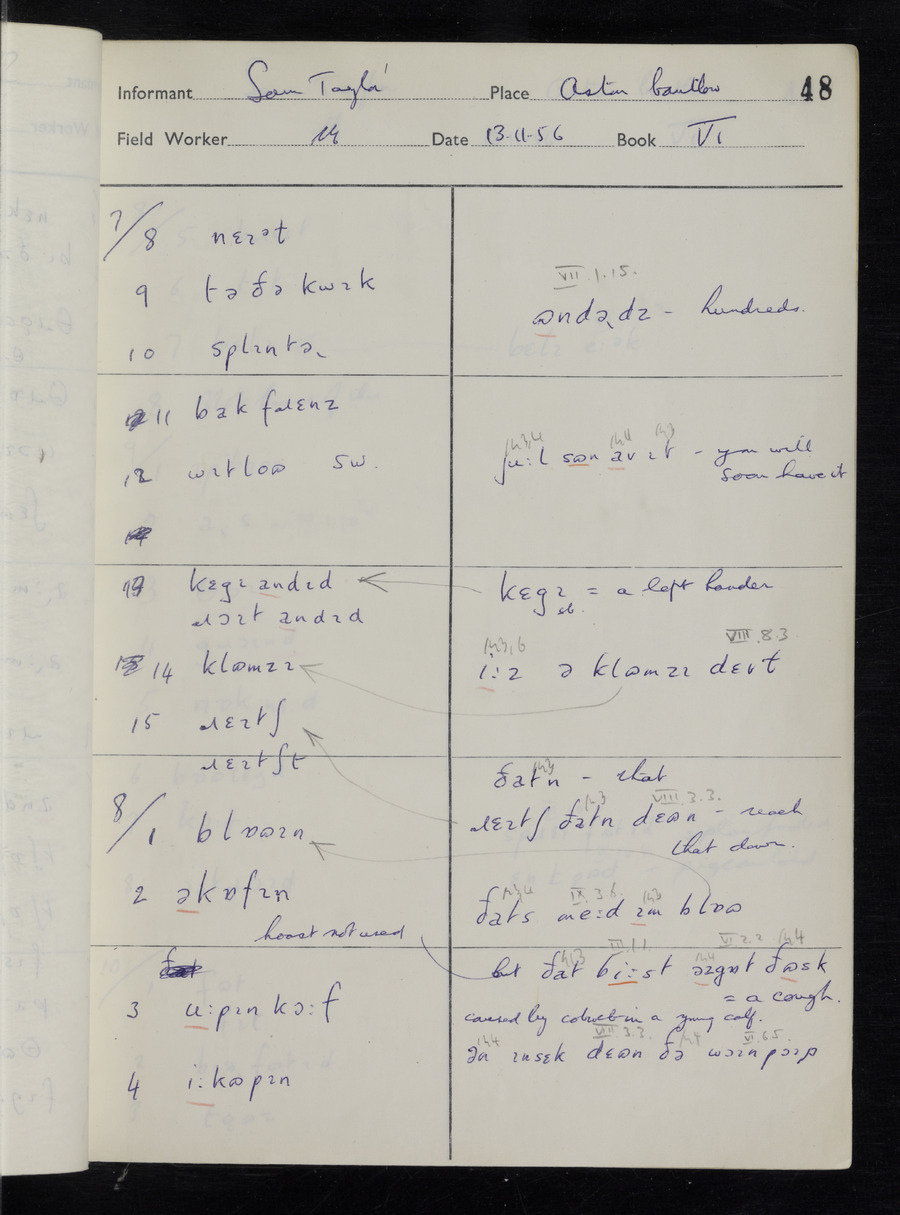 Informant Sam Taylor Place Aston Cantlow 48
Field Worker Date 13-11-56 Book VI
7/8 nɛɪᵊt
9 tə ðə kwɪk
10 splɪntə˞
VII.1.15.
ɷndə˞dz - hundreds.
11 bak
12 SW.
jɷ:l sɷn av ɪt - you will
soon have it
13 kɛgɪ andɪd
ɹɔɪt andɪd
14 klɷmzɪ
15 ɹɛɪtʃ
ɹɛɪtʃt
kɛgɪ = a left hander
sb.
VIII.8.3
i:z ə klɷmzɪ dɛvt
8/1 blɷɪn
2 əkɒfɪn
hoost not used
ðatn - that
VIII.3.3.
ɹɛɪtʃ ðatn dɛɷn - reach
that down.
IX.3.6.
ðats me:d ɪm blɷɷ
3 u:pɪn kɔ:f
4 i:kɷpɪn
III.1.1. VI.2.2
but ðat bi:st ðɷsk
= a cough.
caused by in a young calf.
VIII.3.3. VI.6.5.
ən ɪnsɛk dɛɷn ðə